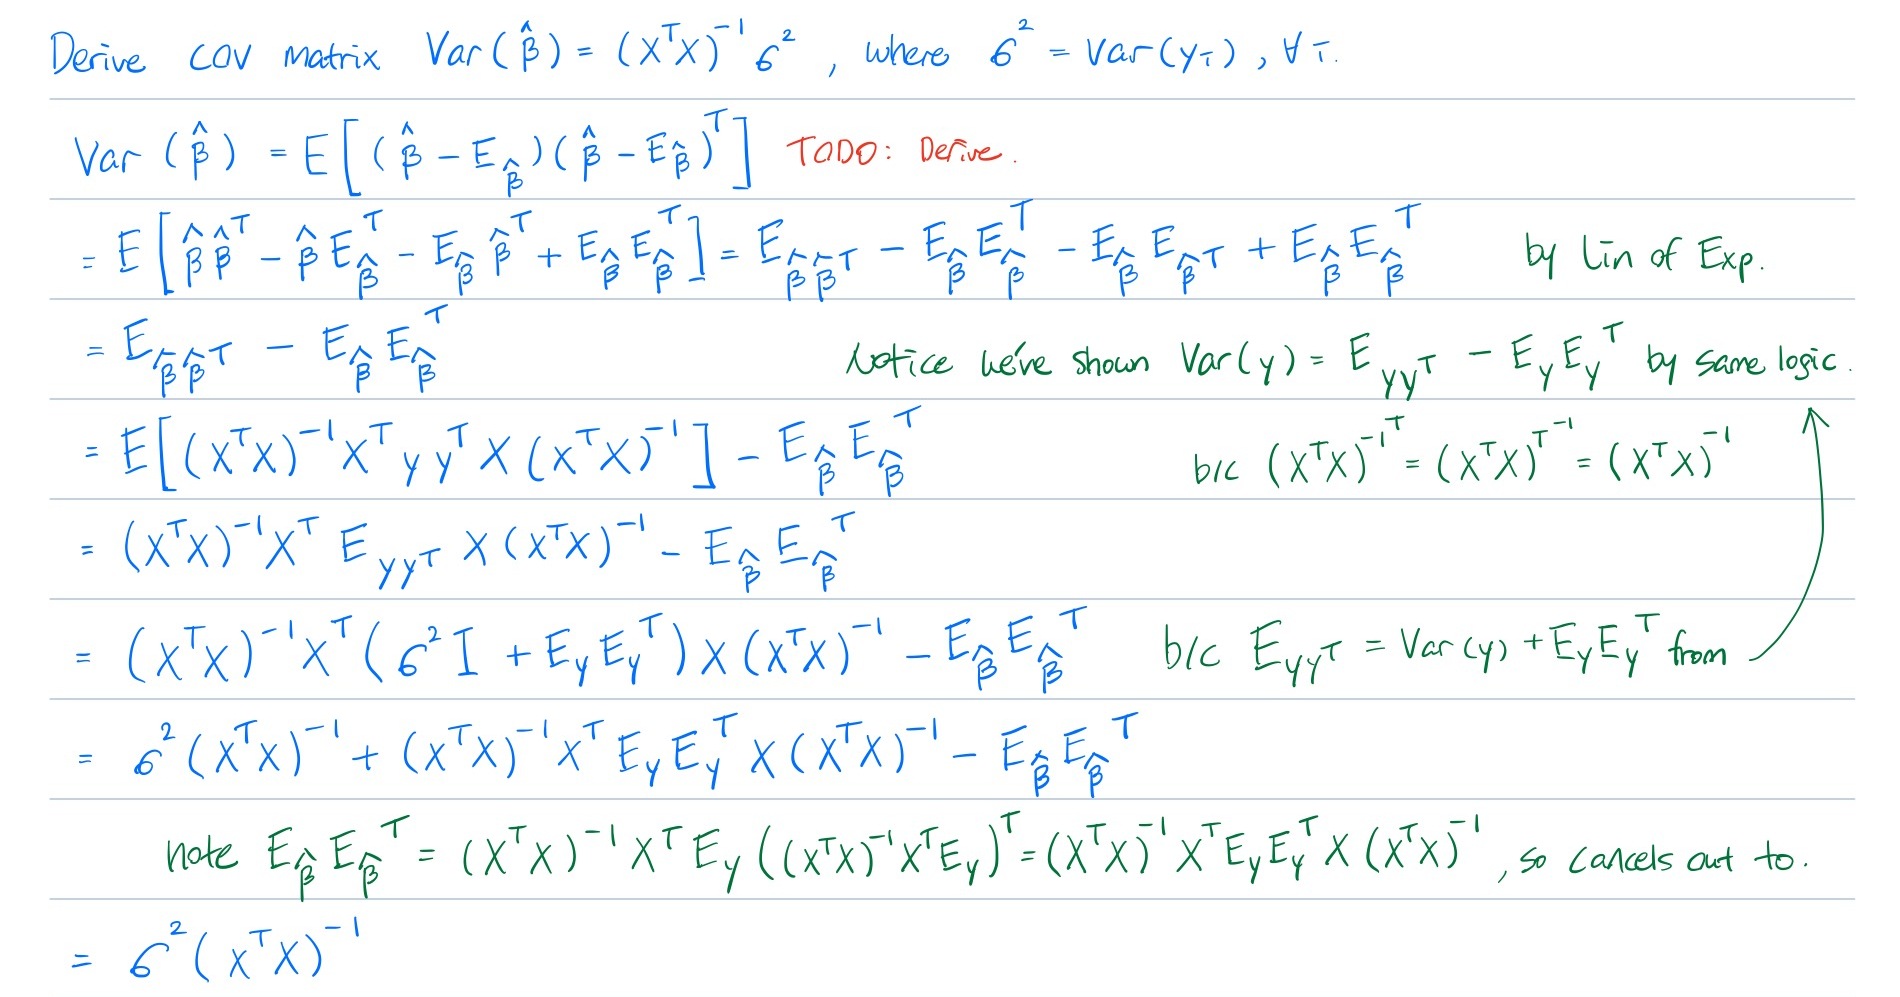 Derive cov matrix Var(β̂) = (XᵀX)⁻¹ σ², where σ² = Var(yᵢ), ∀ i.
Var(β̂) = E[(β̂ − E_β̂)(β̂ − E_β̂)ᵀ] TODO: Derive.
= E[β̂β̂ᵀ − β̂E_β̂ᵀ − E_β̂ β̂ᵀ + E_β̂ E_β̂ᵀ] = E_β̂β̂ᵀ − E_β̂ E_β̂ᵀ − E_β̂ E_β̂ᵀ + E_β̂ E_β̂ᵀ by Lin of Exp.
= E_β̂β̂ᵀ − E_β̂ E_β̂ᵀ Notice we've shown Var(y) = E_yyᵀ − E_y E_yᵀ by same logic.
= E[(XᵀX)⁻¹Xᵀ y yᵀ X (XᵀX)⁻¹] − E_β̂ E_β̂ᵀ b/c (XᵀX)⁻¹ᵀ = (XᵀX)ᵀ⁻¹ = (XᵀX)⁻¹
= (XᵀX)⁻¹Xᵀ E_yyᵀ X (XᵀX)⁻¹ − E_β̂ E_β̂ᵀ
= (XᵀX)⁻¹Xᵀ(σ²I + E_y E_yᵀ) X (XᵀX)⁻¹ − E_β̂ E_β̂ᵀ b/c E_yyᵀ = Var(y) + E_y E_yᵀ from
= σ²(XᵀX)⁻¹ + (XᵀX)⁻¹Xᵀ E_y E_yᵀ X (XᵀX)⁻¹ − E_β̂ E_β̂ᵀ
note E_β̂ E_β̂ᵀ = (XᵀX)⁻¹ Xᵀ E_y ((XᵀX)⁻¹XᵀE_y)ᵀ = (XᵀX)⁻¹ Xᵀ E_y E_yᵀ X (XᵀX)⁻¹, so cancels out to.
= σ²(XᵀX)⁻¹